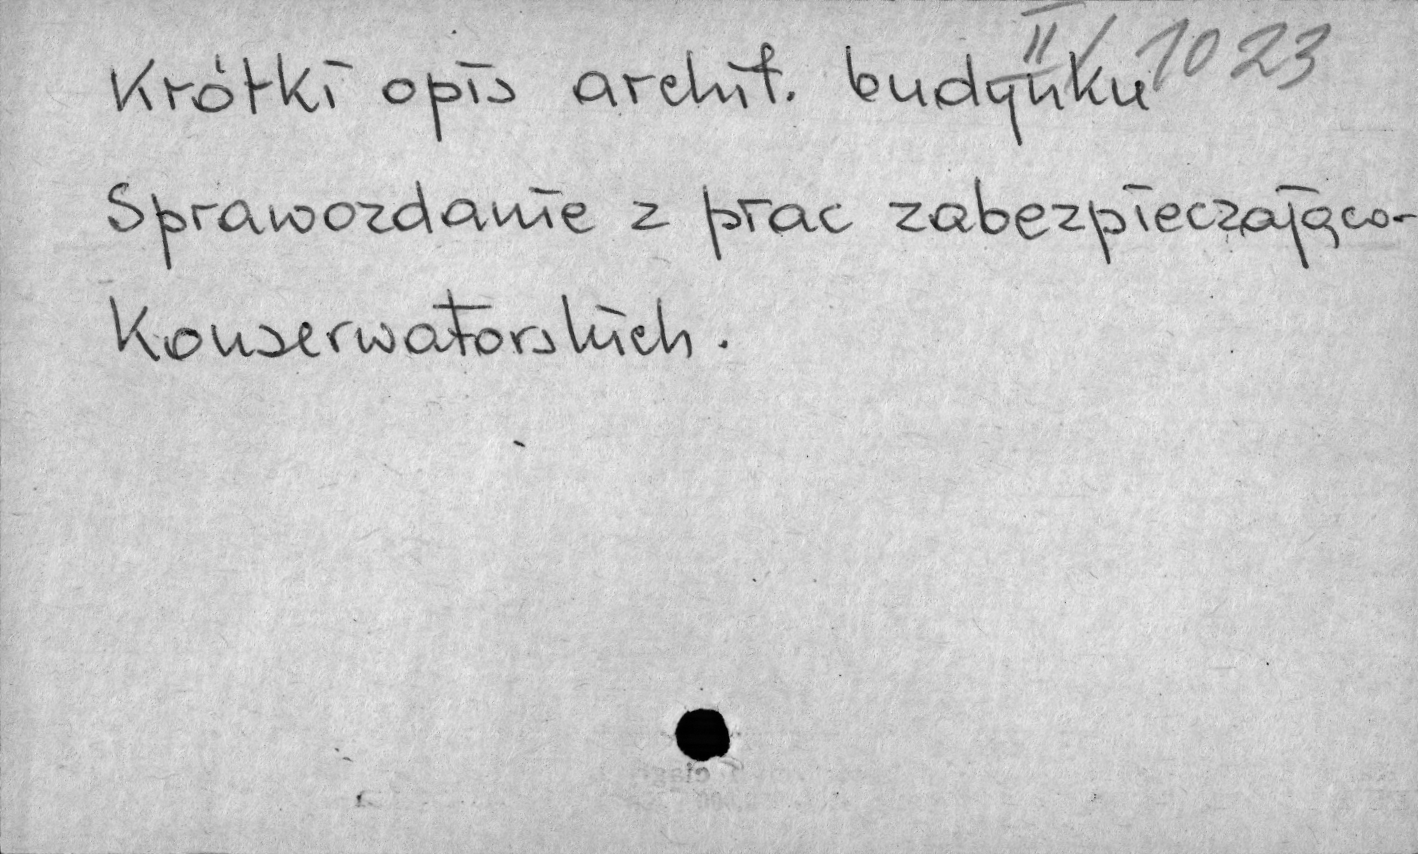 II/1023
Krótki opis archit. budynku
Sprawozdanie z prac zabezpieczająco-
Konserwatorskich.